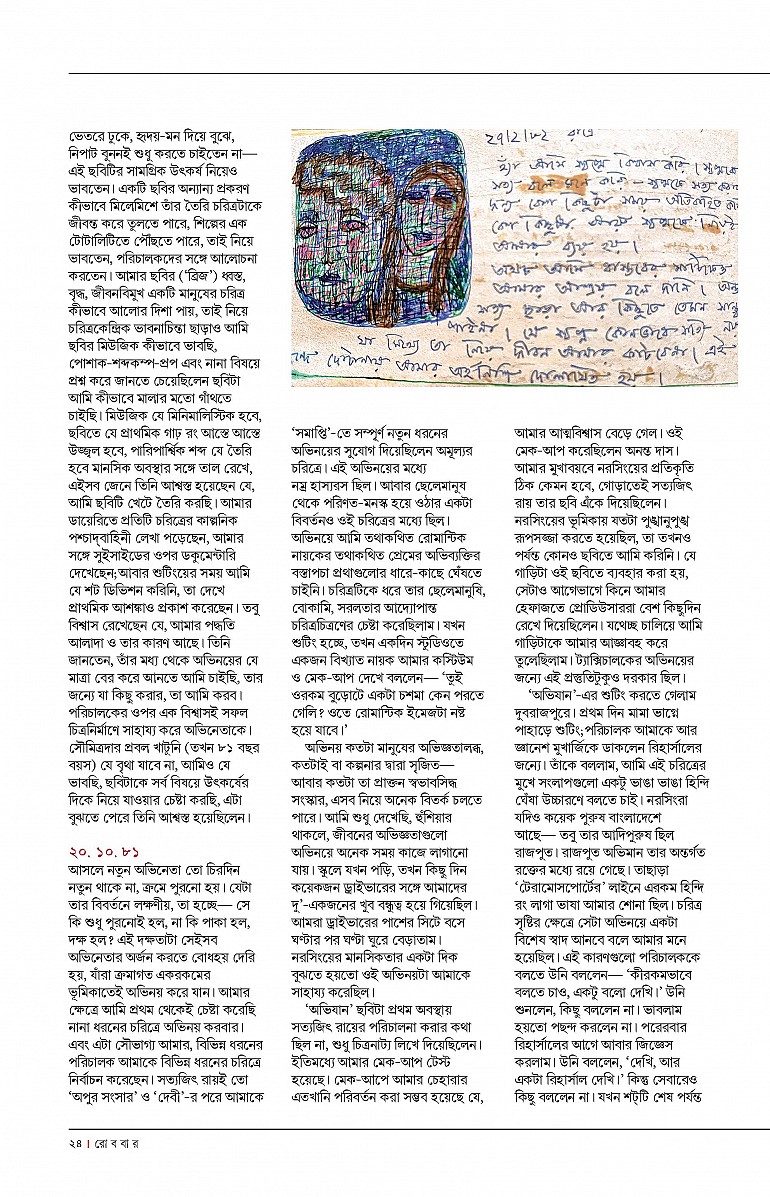 ভেতরে ঢুকে, হৃদয়-মন দিয়ে বুঝে,
নিপাট বুননই শুধু করতে চাইতেন না—
এই ছবিটির সামগ্রিক উৎকর্ষ নিয়েও
ভাবতেন। একটি ছবির অন্যান্য প্রকরণ
কীভাবে মিলেমিশে তাঁর তৈরি চরিত্রটাকে
জীবন্ত করে তুলতে পারে, শিল্পের এক
টোটালিটিতে পৌঁছতে পারে, তাই নিয়ে
ভাবতেন, পরিচালকদের সঙ্গে আলোচনা
করতেন। আমার ছবির ('ব্রিজ') ধ্বস্ত,
বৃদ্ধ, জীবনবিমুখ একটি মানুষের চরিত্র
কীভাবে আলোর দিশা পায়, তাই নিয়ে
চরিত্রকেন্দ্রিক ভাবনাচিন্তা ছাড়াও আমি
ছবির মিউজিক কীভাবে ভাবছি,
পোশাক-শব্দকম্প-প্রপ এবং নানা বিষয়ে
প্রশ্ন করে জানতে চেয়েছিলেন ছবিটা
আমি কীভাবে মালার মতো গাঁথতে
চাইছি। মিউজিক যে মিনিমালিস্টিক হবে,
ছবিতে যে প্রাথমিক গাঢ় রং আস্তে আস্তে
উজ্জ্বল হবে, পারিপার্শ্বিক শব্দ যে তৈরি
হবে মানসিক অবস্থার সঙ্গে তাল রেখে,
এইসব জেনে তিনি আশ্বস্ত হয়েছেন যে,
আমি ছবিটি খেটে তৈরি করছি। আমার
ডায়েরিতে প্রতিটি চরিত্রের কাল্পনিক
পশ্চাদ্‌বাহিনী লেখা পড়েছেন, আমার
সঙ্গে সুইসাইডের ওপর ডকুমেন্টারি
দেখেছেন;আবার শুটিংয়ের সময় আমি
যে শট ডিভিশন করিনি, তা দেখে
প্রাথমিক আশঙ্কাও প্রকাশ করেছেন। তবু
বিশ্বাস রেখেছেন যে, আমার পদ্ধতি
আলাদা ও তার কারণ আছে। তিনি
জানতেন, তাঁর মধ্য থেকে অভিনয়ের যে
মাত্রা বের করে আনতে আমি চাইছি, তার
জন্যে যা কিছু করার, তা আমি করব।
পরিচালকের ওপর এক বিশ্বাসই সফল
চিত্রনির্মাণে সাহায্য করে অভিনেতাকে।
সৌমিত্রদার প্রবল খাটুনি (তখন ৮১ বছর
বয়স) যে বৃথা যাবে না, আমিও যে
ভাবছি, ছবিটাকে সর্ব বিষয়ে উৎকর্ষের
দিকে নিয়ে যাওয়ার চেষ্টা করছি, এটা
বুঝতে পেরে তিনি আশ্বস্ত হয়েছিলেন।
২০. ১০. ৮১
আসলে নতুন অভিনেতা তো চিরদিন
নতুন থাকে না, ক্রমে পুরনো হয়। যেটা
তার বিবর্তনে লক্ষণীয়, তা হচ্ছে— সে
কি শুধু পুরনোই হল, না কি পাকা হল,
দক্ষ হল? এই দক্ষতাটা সেইসব
অভিনেতার অর্জন করতে বোধহয় দেরি
হয়, যাঁরা ক্রমাগত একরকমের
ভূমিকাতেই অভিনয় করে যান। আমার
ক্ষেত্রে আমি প্রথম থেকেই চেষ্টা করেছি
নানা ধরনের চরিত্রে অভিনয় করবার।
এবং এটা সৌভাগ্য আমার, বিভিন্ন ধরনের
পরিচালক আমাকে বিভিন্ন ধরনের চরিত্রে
নির্বাচন করেছেন। সত্যজিৎ রায়ই তো
'অপুর সংসার' ও 'দেবী'-র পরে আমাকে
'সমাপ্তি'-তে সম্পূর্ণ নতুন ধরনের
অভিনয়ের সুযোগ দিয়েছিলেন অমূল্যর
চরিত্রে। এই অভিনয়ের মধ্যে
নম্র হাস্যরস ছিল। আবার ছেলেমানুষ
থেকে পরিণত-মনস্ক হয়ে ওঠার একটা
বিবর্তনও ওই চরিত্রের মধ্যে ছিল।
অভিনয়ে আমি তথাকথিত রোমান্টিক
নায়কের তথাকথিত প্রেমের অভিব্যক্তির
বস্তাপচা প্রথাগুলোর ধারে-কাছে ঘেঁষতে
চাইনি। চরিত্রটিকে ধরে তার ছেলেমানুষি,
বোকামি, সরলতার আদ্যোপান্ত
চরিত্রচিত্রণের চেষ্টা করেছিলাম। যখন
শুটিং হচ্ছে, তখন একদিন স্টুডিওতে
একজন বিখ্যাত নায়ক আমার কস্টিউম
ও মেক-আপ দেখে বললেন— 'তুই
ওরকম বুড়োটে একটা চশমা কেন পরতে
গেলি? ওতে রোমান্টিক ইমেজটা নষ্ট
হয়ে যাবে।'
অভিনয় কতটা মানুষের অভিজ্ঞতালব্ধ,
কতটাই বা কল্পনার দ্বারা সৃজিত—
আবার কতটা তা প্রাক্তন স্বভাবসিদ্ধ
সংস্কার, এসব নিয়ে অনেক বিতর্ক চলতে
পারে। আমি শুধু দেখেছি, হুঁশিয়ার
থাকলে, জীবনের অভিজ্ঞতাগুলো
অভিনয়ে অনেক সময় কাজে লাগানো
যায়। স্কুলে যখন পড়ি, তখন কিছু দিন
কয়েকজন ড্রাইভারের সঙ্গে আমাদের
দু'-একজনের খুব বন্ধুত্ব হয়ে গিয়েছিল।
আমরা ড্রাইভারের পাশের সিটে বসে
ঘণ্টার পর ঘণ্টা ঘুরে বেড়াতাম।
নরসিংয়ের মানসিকতার একটা দিক
বুঝতে হয়তো ওই অভিনয়টা আমাকে
সাহায্য করেছিল।
'অভিযান' ছবিটা প্রথম অবস্থায়
সত্যজিৎ রায়ের পরিচালনা করার কথা
ছিল না, শুধু চিত্রনাট্য লিখে দিয়েছিলেন।
ইতিমধ্যে আমার মেক-আপ টেস্ট
হয়েছে। মেক-আপে আমার চেহারার
এতখানি পরিবর্তন করা সম্ভব হয়েছে যে,
আমার আত্মবিশ্বাস বেড়ে গেল। ওই
মেক-আপ করেছিলেন অনন্ত দাস।
আমার মুখাবয়বে নরসিংয়ের প্রতিকৃতি
ঠিক কেমন হবে, গোড়াতেই সত্যজিৎ
রায় তার ছবি এঁকে দিয়েছিলেন।
নরসিংয়ের ভূমিকায় যতটা পুঙ্খানুপুঙ্খ
রূপসজ্জা করতে হয়েছিল, তা তখনও
পর্যন্ত কোনও ছবিতে আমি করিনি। যে
গাড়িটা ওই ছবিতে ব্যবহার করা হয়,
সেটাও আগেভাগে কিনে আমার
হেফাজতে প্রোডিউসাররা বেশ কিছুদিন
রেখে দিয়েছিলেন। যথেচ্ছ চালিয়ে আমি
গাড়িটাকে আমার আজ্ঞাবহ করে
তুলেছিলাম। ট্যাক্সিচালকের অভিনয়ের
জন্যে এই প্রস্তুতিটুকুও দরকার ছিল।
'অভিযান'-এর শুটিং করতে গেলাম
দুবরাজপুরে। প্রথম দিন মামা ভাগ্নে
পাহাড়ে শুটিং;পরিচালক আমাকে আর
জ্ঞানেশ মুখার্জিকে ডাকলেন রিহার্সালের
জন্যে। তাঁকে বললাম, আমি এই চরিত্রের
মুখে সংলাপগুলো একটু ভাঙা ভাঙা হিন্দি
ঘেঁষা উচ্চারণে বলতে চাই। নরসিংরা
যদিও কয়েক পুরুষ বাংলাদেশে
আছে— তবু তার আদিপুরুষ ছিল
রাজপুত। রাজপুত অভিমান তার অন্তর্গত
রক্তের মধ্যে রয়ে গেছে। তাছাড়া
'টেরামোসপোর্টের' লাইনে এরকম হিন্দি
রং লাগা ভাষা আমার শোনা ছিল। চরিত্র
সৃষ্টির ক্ষেত্রে সেটা অভিনয়ে একটা
বিশেষ স্বাদ আনবে বলে আমার মনে
হয়েছিল। এই কারণগুলো পরিচালককে
বলতে উনি বললেন— 'কীরকমভাবে
বলতে চাও, একটু বলো দেখি।' উনি
শুনলেন, কিছু বললেন না। ভাবলাম
হয়তো পছন্দ করলেন না। পরেরবার
রিহার্সালের আগে আবার জিজ্ঞেস
করলাম। উনি বললেন, 'দেখি, আর
একটা রিহার্সাল দেখি।' কিন্তু সেবারেও
কিছু বললেন না। যখন শট্‌টি শেষ পর্যন্ত
২৪ । রো ব বা র